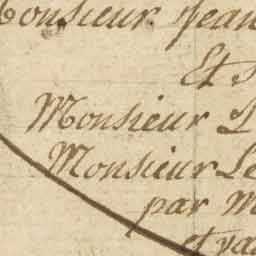 Monsieur Jean
Et
Monsieur
Monsieur Le
par M
et